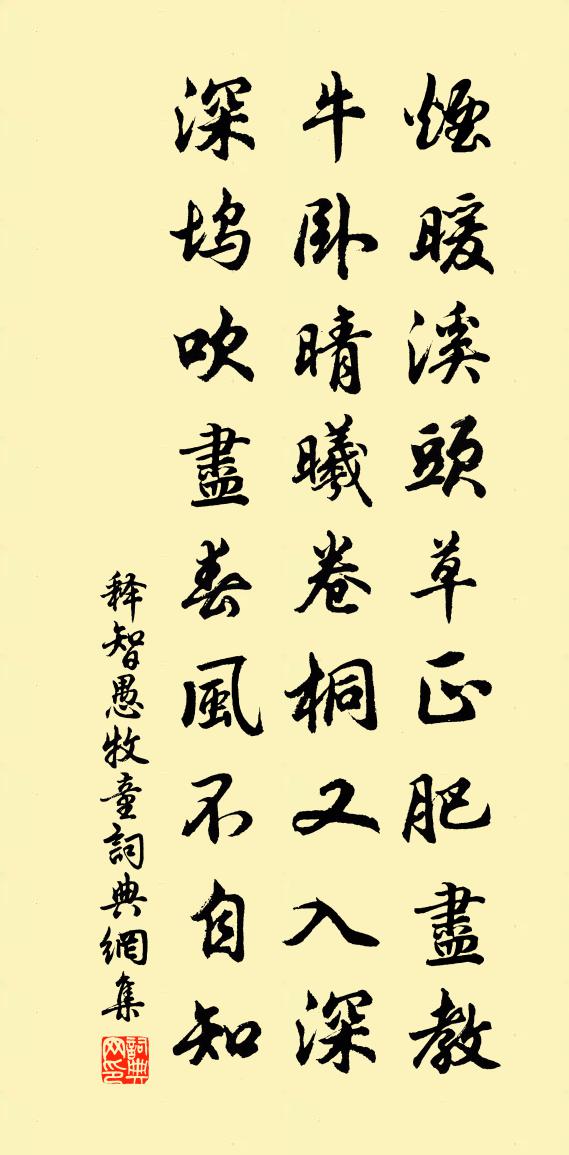 煙暖溪頭草正肥盡教
牛卧晴曦卷桐又入深
深坞吹盡春風不自知
释智愚牧童詞典網集
詞典网印